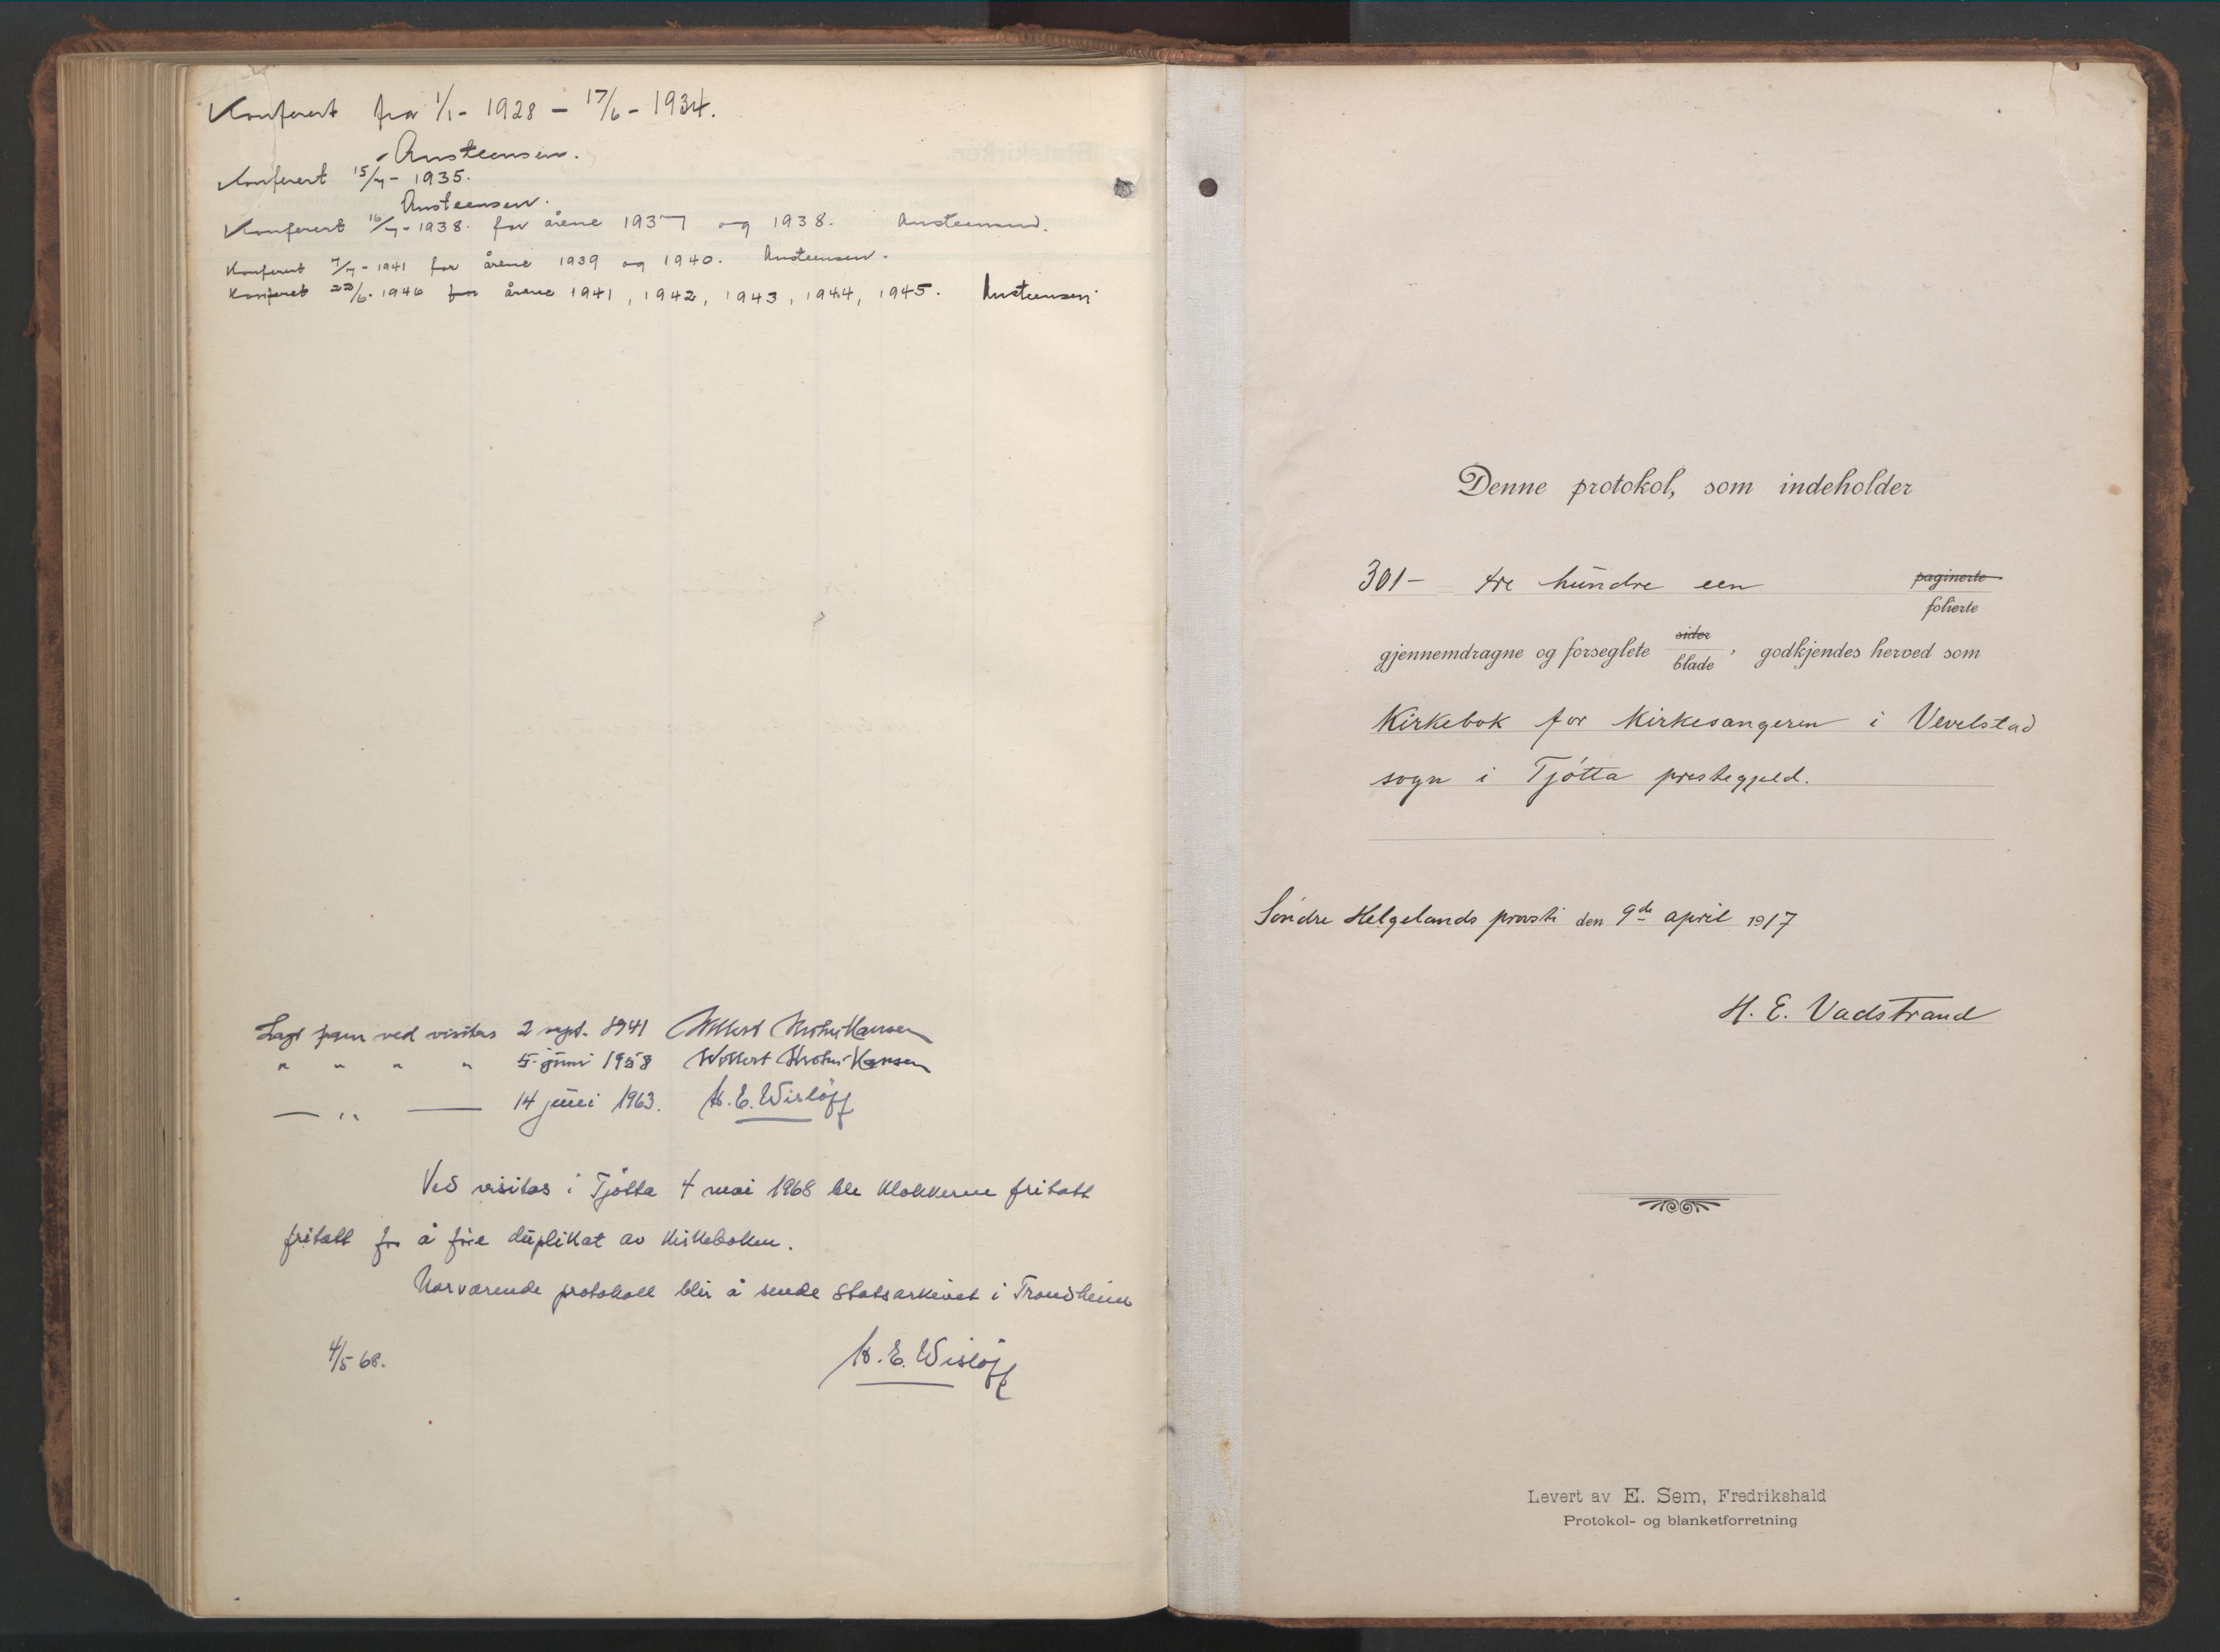 Konferert fra 1/1 - 1928 - 17/6 - 1934.
Austeensen.
Konferert 15/7 - 1935.
Austeensen.
Konferert 16/7 - 1938. for årene 1937 og 1938. Austeensen.
Konferert 7/7 - 1941 for årene 1939 og 1940. Austeensen.
Konferet 22/6. 1946 for årene 1941, 1942, 1943, 1944, 1945. Austeensen
Lagt fram ved visitas 2 sept. 1941 Wollert Krohn Hansen
" " " " 5. juni 1958 Wollert Krohn-Hansen
— " — 14 juni 1963. K. E. Wislöff
Ved visitas i Tjötta 4 mai 1968 ble klokkerne fritatt
fritatt for å före duplikat av kirkeboken.
Nærværende protokoll blir å sende Statsarkivet i Trondheim
4/5 68.
K. E. Wislöff
Denne protokol, som indeholder
301- tre hundre een paginerte
folierte
gjennemdragne og forseglete sider blade, godkjendes herved som
Kirkebok for kirkesangeren i Vevelstad
sogn i Tjøtta prestegjeld.
Søndre Helgelands prosti den 9de april 1917
H. E. Vadstrand
Levert av E. Sem, Fredrikshald
Protokol- og blanketforretning